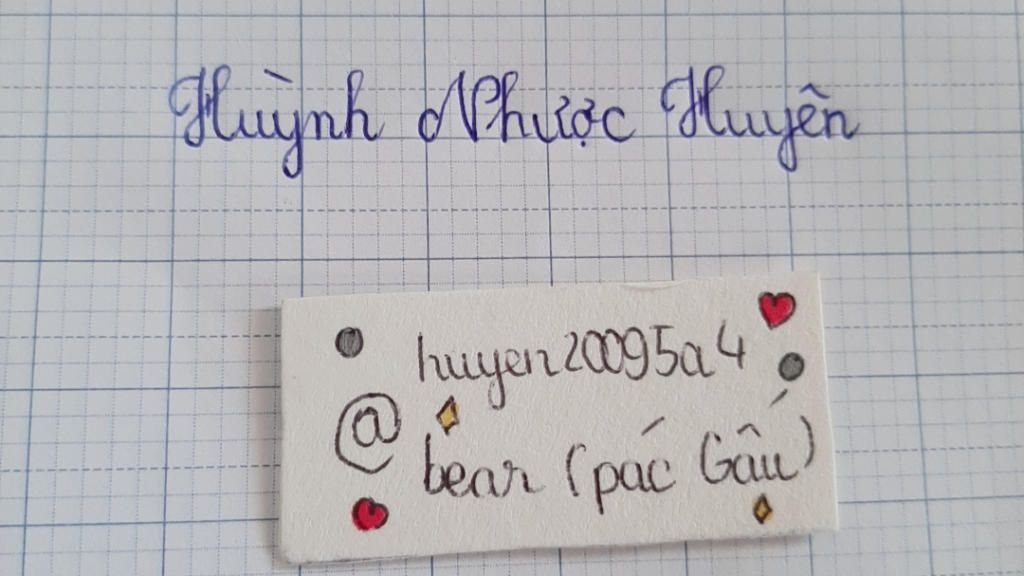 Huỳnh Nhược Huyên
huyen20095a4
@
bear (pác Gấu)